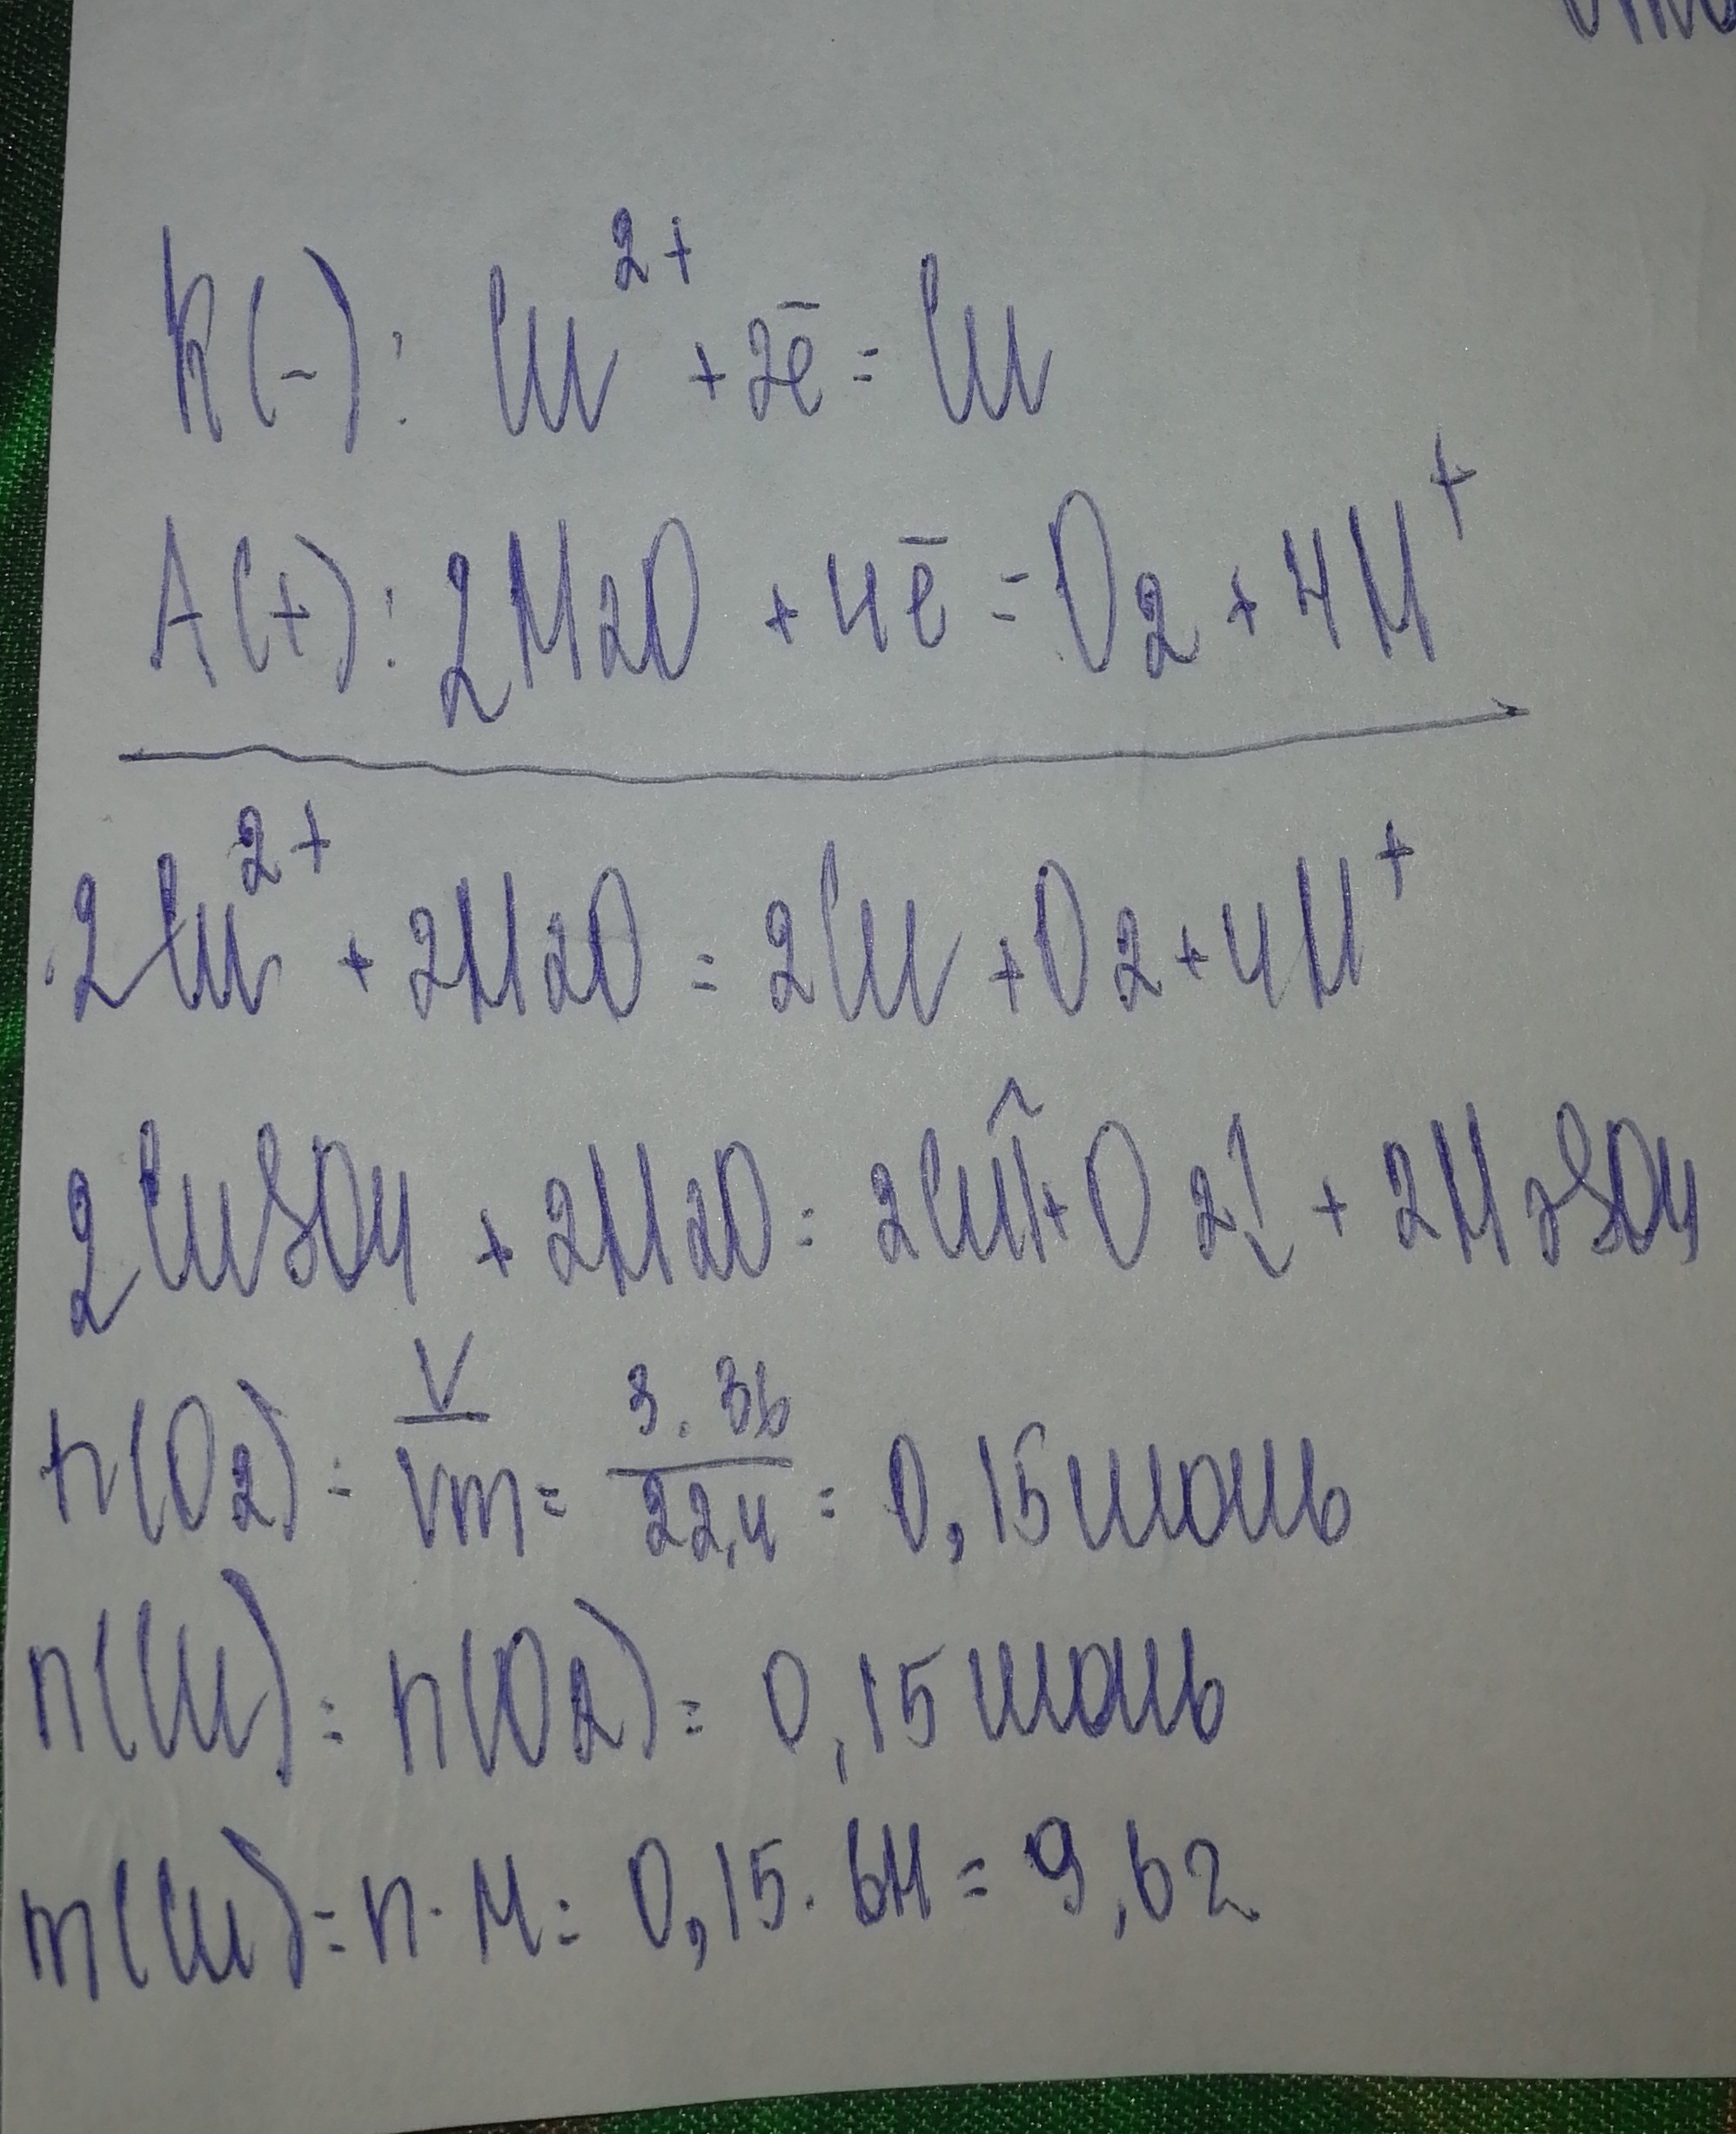 K(-): Cu²⁺ + 2ē = Cu
A(+): 2H2O + 4ē = O2 + 4H⁺
2Cu²⁺ + 2H2O = 2Cu + O2 + 4H⁺
2CuSO4 + 2H2O = 2Cu↑ + O2↓ + 2H2SO4
n(O2) = V/Vm = 3.36/22,4 = 0,15 моль
n(Cu) = n(O2) = 0,15 моль
m(Cu) = n · M = 0,15 · 64 = 9,6г